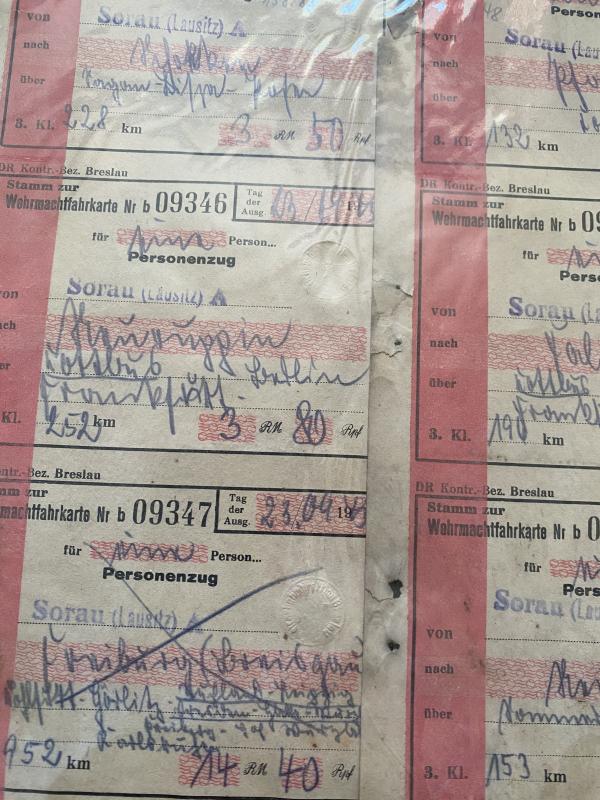 von Sorau (Lausitz) A
nach
über Sagan-Lissa-Posen
3. Kl. 228 km 3 RM 50 Rpf
DR Kontr.-Bez. Breslau
Stamm zur
Wehrmachtfahrkarte Nr b 09346
Tag
der
Ausg.
für eine Person...
Personenzug
von Sorau (Lausitz) A
nach Neuruppin
Cottbus Berlin
Frankfurt
Kl. 252 km 3 RM 80 Rpf
Kontr.-Bez. Breslau
Stamm zur
Wehrmachtfahrkarte Nr b 09347
Tag
der
Ausg. 23.09.1943
für eine Person...
Personenzug
Sorau (Lausitz) A
Freiburg (Breisgau
Görlitz
Karlsruhe
952 km 14 RM 40 Rpf
Person
von Sorau (Lau
nach
über
3. Kl. 132 km
DR Kontr.-Bez. Breslau
Stamm zur
Wehrmachtfahrkarte Nr b 09
für
Perso
von Sorau (La
nach
über Cottbus
Frankf
3. Kl. 190 km
DR Kontr.-Bez. Breslau
Stamm zur
Wehrmachtfahrkarte Nr b 0
für
Pers
von Sorau (La
nach
über Sommerf
3. Kl. 153 km